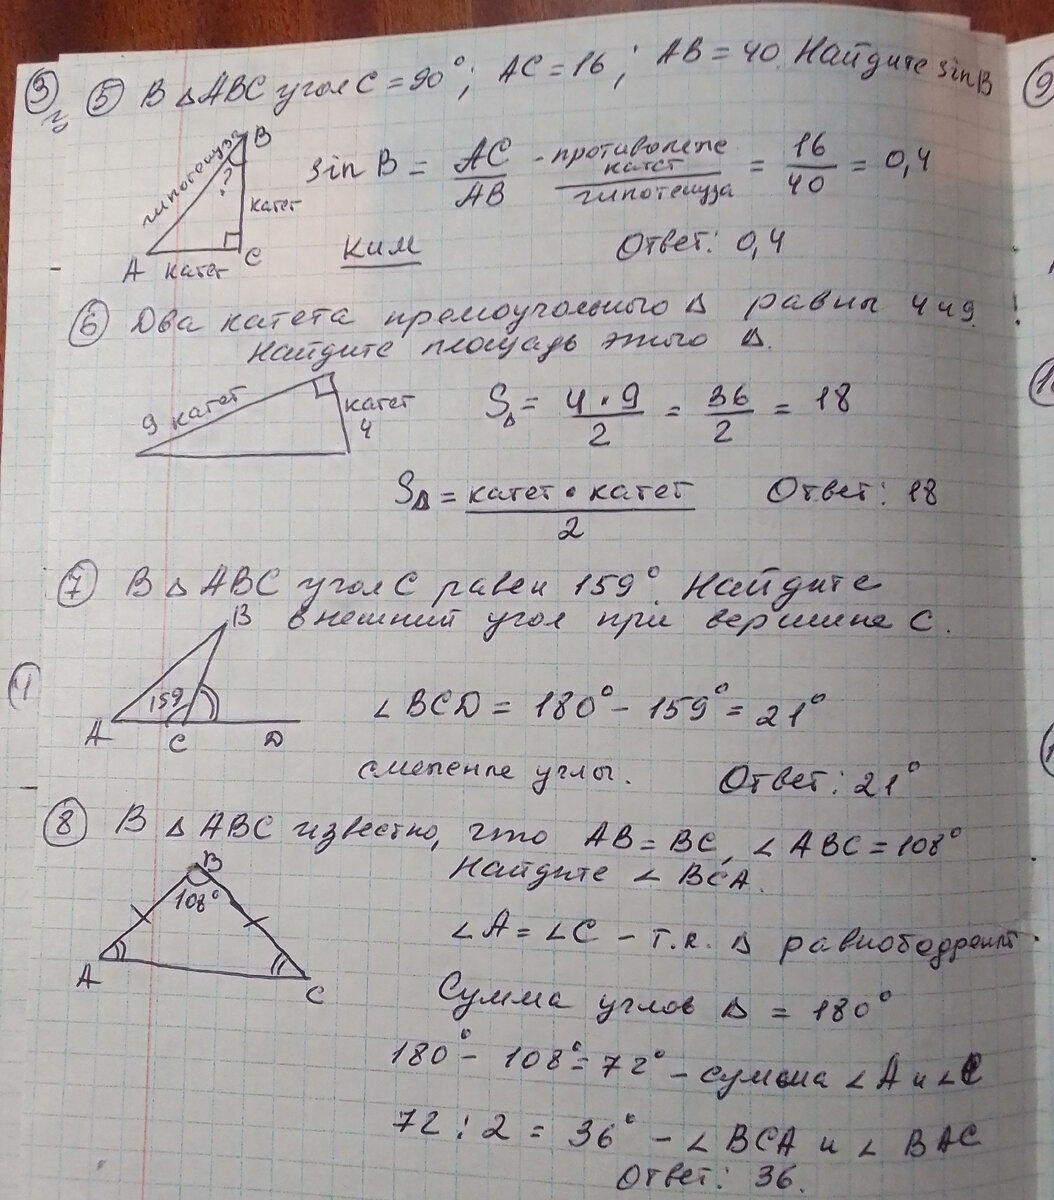 5 В △ABC угол C = 90°; AC = 16; AB = 40. Найдите sin B
гипотенуза
B
?
катет
A катет C
sin B = AC/AB - противолеж катет/гипотенуза = 16/40 = 0,4
КИМ
Ответ: 0,4
6 Два катета прямоугольного △ равны 4 и 9.
Найдите площадь этого △.
9 катет
катет
4
S△ = 4 · 9/2 = 36/2 = 18
S△ = катет · катет/2
Ответ: 18
7 В △ABC угол C равен 159°. Найдите
внешний угол при вершине C.
B
159
A C D
∠BCD = 180° - 159° = 21°
смежные углы.
Ответ: 21°
8 В △ABC известно, что AB = BC, ∠ABC = 108°
Найдите ∠BCA.
B
108°
A
C
∠A = ∠C - т.к. △ равнобедрен
Сумма углов △ = 180°
180° - 108° = 72° - сумма ∠A и ∠C
72 : 2 = 36° - ∠BCA и ∠BAC
Ответ: 36.